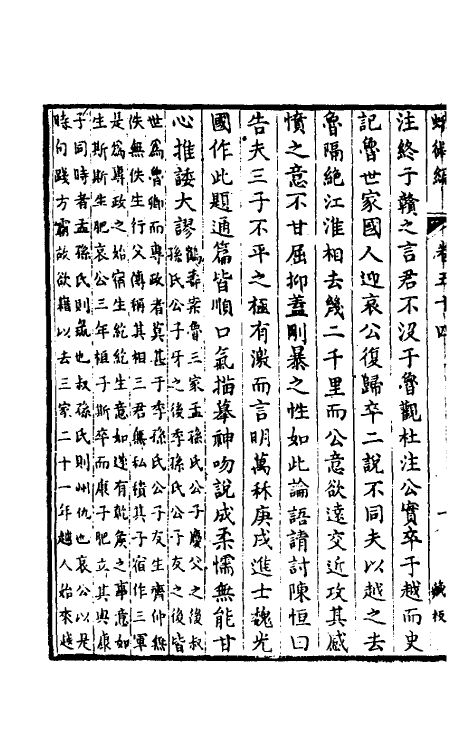 蛾術編 卷五十四 一 藏板
注終子贛之言君不沒于魯觀杜注公實卒于越而史
記魯世家國人迎哀公復歸卒二說不同夫以越之去
魯隔絕江淮相去幾二千里而公意欲遠交近攻其感
憤之意不甘屈抑蓋剛暴之性如此論語請討陳恒曰
告夫三子不平之極有激而言明萬秝庚戌進士魏光
國作此題通篇皆順口氣描摹神吻說成柔懦無能甘
心推諉大謬鶴壽案魯三家孟孫氏公子慶父之後叔
孫氏公子牙之後季孫氏公子友之後皆
世為魯卿而專政者莫甚于季孫氏公子友生齊仲孫
佚無佚生行父傳稱其相三君無私積其子宿作三軍
是為專政之始宿生紇紇生意如遂有乾侯之事意如
生斯斯生肥哀公三年桓子斯卒而康子肥立其與康
子同時者孟孫氏則彘也叔孫氏則州仇也哀公以是
時句踐方霸故欲藉以去三家二十一年越人始來越